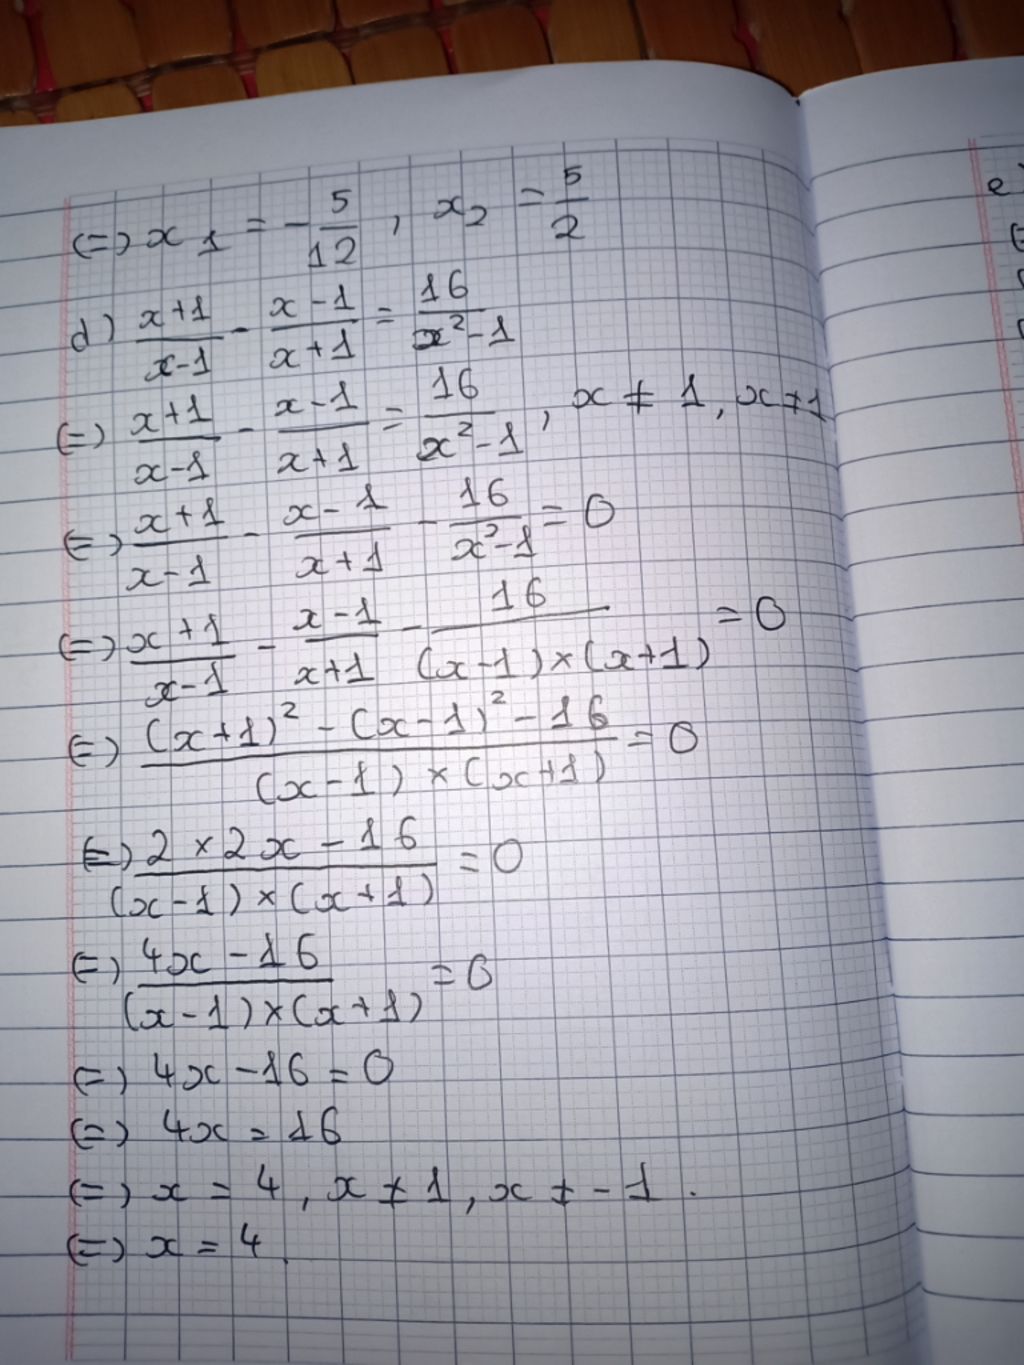 (=) x₁ = -5/12 , x₂ = 5/2
d) (x+1)/(x-1) - (x-1)/(x+1) = 16/(x²-1)
(=) (x+1)/(x-1) - (x-1)/(x+1) = 16/(x²-1) , x ≠ 1, x ≠ 1
(=) (x+1)/(x-1) - (x-1)/(x+1) - 16/(x²-1) = 0
(=) (x+1)/(x-1) - (x-1)/(x+1) - 16/((x-1)×(x+1)) = 0
(=) ((x+1)² - (x-1)² - 16)/((x-1)×(x+1)) = 0
(=) (2×2x-16)/((x-1)×(x+1)) = 0
(=) (4x-16)/((x-1)×(x+1)) = 0
(=) 4x-16 = 0
(=) 4x = 16
(=) x = 4, x ≠ 1, x ≠ -1.
(=) x = 4.
e)